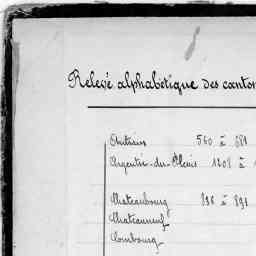 Relevé alphabétique des canton
Antrain 560 à 681
Argentré-du-Plessis 1208 à 1
Chateaubourg 836 à 891
Chateauneuf
Combourg